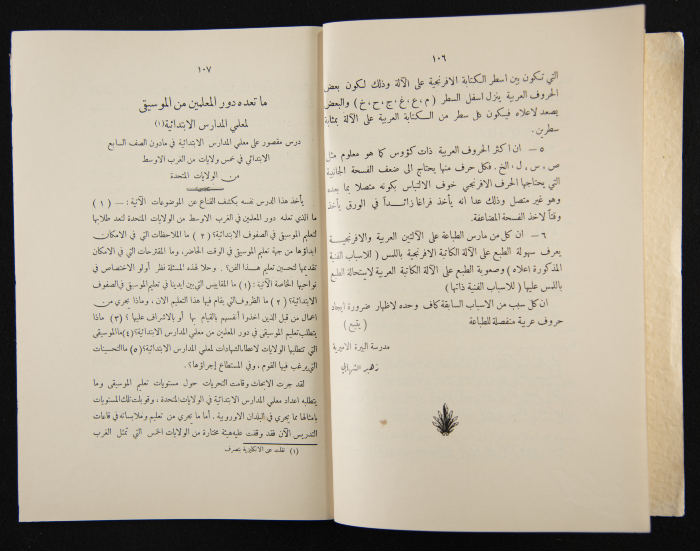 ١٠٦
التي تكون بين اسطر الكتابة الافرنجية على الآلة وذلك لكون بعض
الحروف العربية ينزل اسفل السطر ( م ، ع ، غ ، ج ، ح ، خ ) والبعض
يصعد لاعلاه فيكون كل سطر من الكتابة العربية على الآلة بمثابة
سطرين .
٥ — ان اكثر الحروف العربية ذات كؤوس كما هو معلوم مثل
ص ، س ، ل ، الخ . فكل حرف منها يحتاج الى ضعف الفسحة الجانبية
التي يحتاجها الحرف الافرنجي خوف الالتباس بكونه متصلا بما بعده
وهو غير متصل وذلك عدا انه يأخذ فراغا زائداً في الورق يأخذ
وقتاً لاخذ الفسحة المضاعفة .
٦ — ان كل من مارس الطباعة على الآلتين العربية والافرنجية
يعرف سهولة الطبع على الآلة الكاتبة الافرنجية باللمس ( للاسباب الفنية
المذكورة اعلاه ) وصعوبة الطبع على الآلة الكاتبة العربية لاستحالة الطبع
باللمس عليها ( للاسباب الفنية ذاتها )
ان كل سبب من الاسباب السابقة كاف وحده لاظهار ضرورة ايجاد
حروف عربية منفصلة للطباعة
( يتبع )
مدرسة البيرة الاميرية
زهير الشهابي
١٠٧
ما تعده دور المعلمين من الموسيقى
لمعلمي المدارس الابتدائية (١)
درس مقصور على معلمي المدارس الابتدائية في مادون الصف السابع
الابتدائي في خمس ولايات من الغرب الاوسط
من الولايات المتحدة
يأخذ هذا الدرس نفسه بكشف القناع عن الموضوعات الآتية : — ( ١ )
ما الذي تعده دور المعلمين في الغرب الاوسط من الولايات المتحدة لتعد طلابها
لتعليم الموسيقى في الصفوف الابتدائية؟ ( ٢ ) ما الملاحظات التي في الامكان
ابداؤها من جهة تعليم الموسيقى في الوقت الحاضر ، وما المقترحات التي في الامكان
تقديمها لتحسين تعليم هذا الفن ؟ . وحلا لهذه المسئلة نظر أولو الاختصاص في
نواحيها الخاصة الآتية : (١) ما المقاييس التي بين ايدينا في تعليم الموسيقى في الصفوف
الابتدائية؟ ( ٢ ) ما الظروف التي يقام فيها هذا التعليم الان ، وماذا يجري من
اعمال من قبل الذين اخذوا أنفسهم بالقيام بها أو بالاشراف عليها ؟ (٣) ماذا
يتطلب تعليم الموسيقى في دور المعلمين من معلمي المدارس الابتدائية؟ (٤) ما الموسيقى
التي تتطلبها الولايات لاعطا الشهادات لمعلمي المدارس الابتدائية؟ (٥) ما التحسينات
التي يرغب فيها القوم ، وفي المستطاع إجراؤها ؟ .
لقد جرت الابحاث وقامت التحريات حول مستويات تعليم الموسيقى وما
يتطلبه اعداد معلمي المدارس الابتدائية في الولايات المتحدة ، وقوبلت تلك المستويات
بامثالها مما يجري في البلدان الاوروبية . أما ما يجري من تعليم وملابساته في قاعات
التدريس الآن فقد وقفت عليه هيئة مختارة من الولايات الخمس التي تمثل الغرب
(١) نقلت عن الانكليزية بتصرف